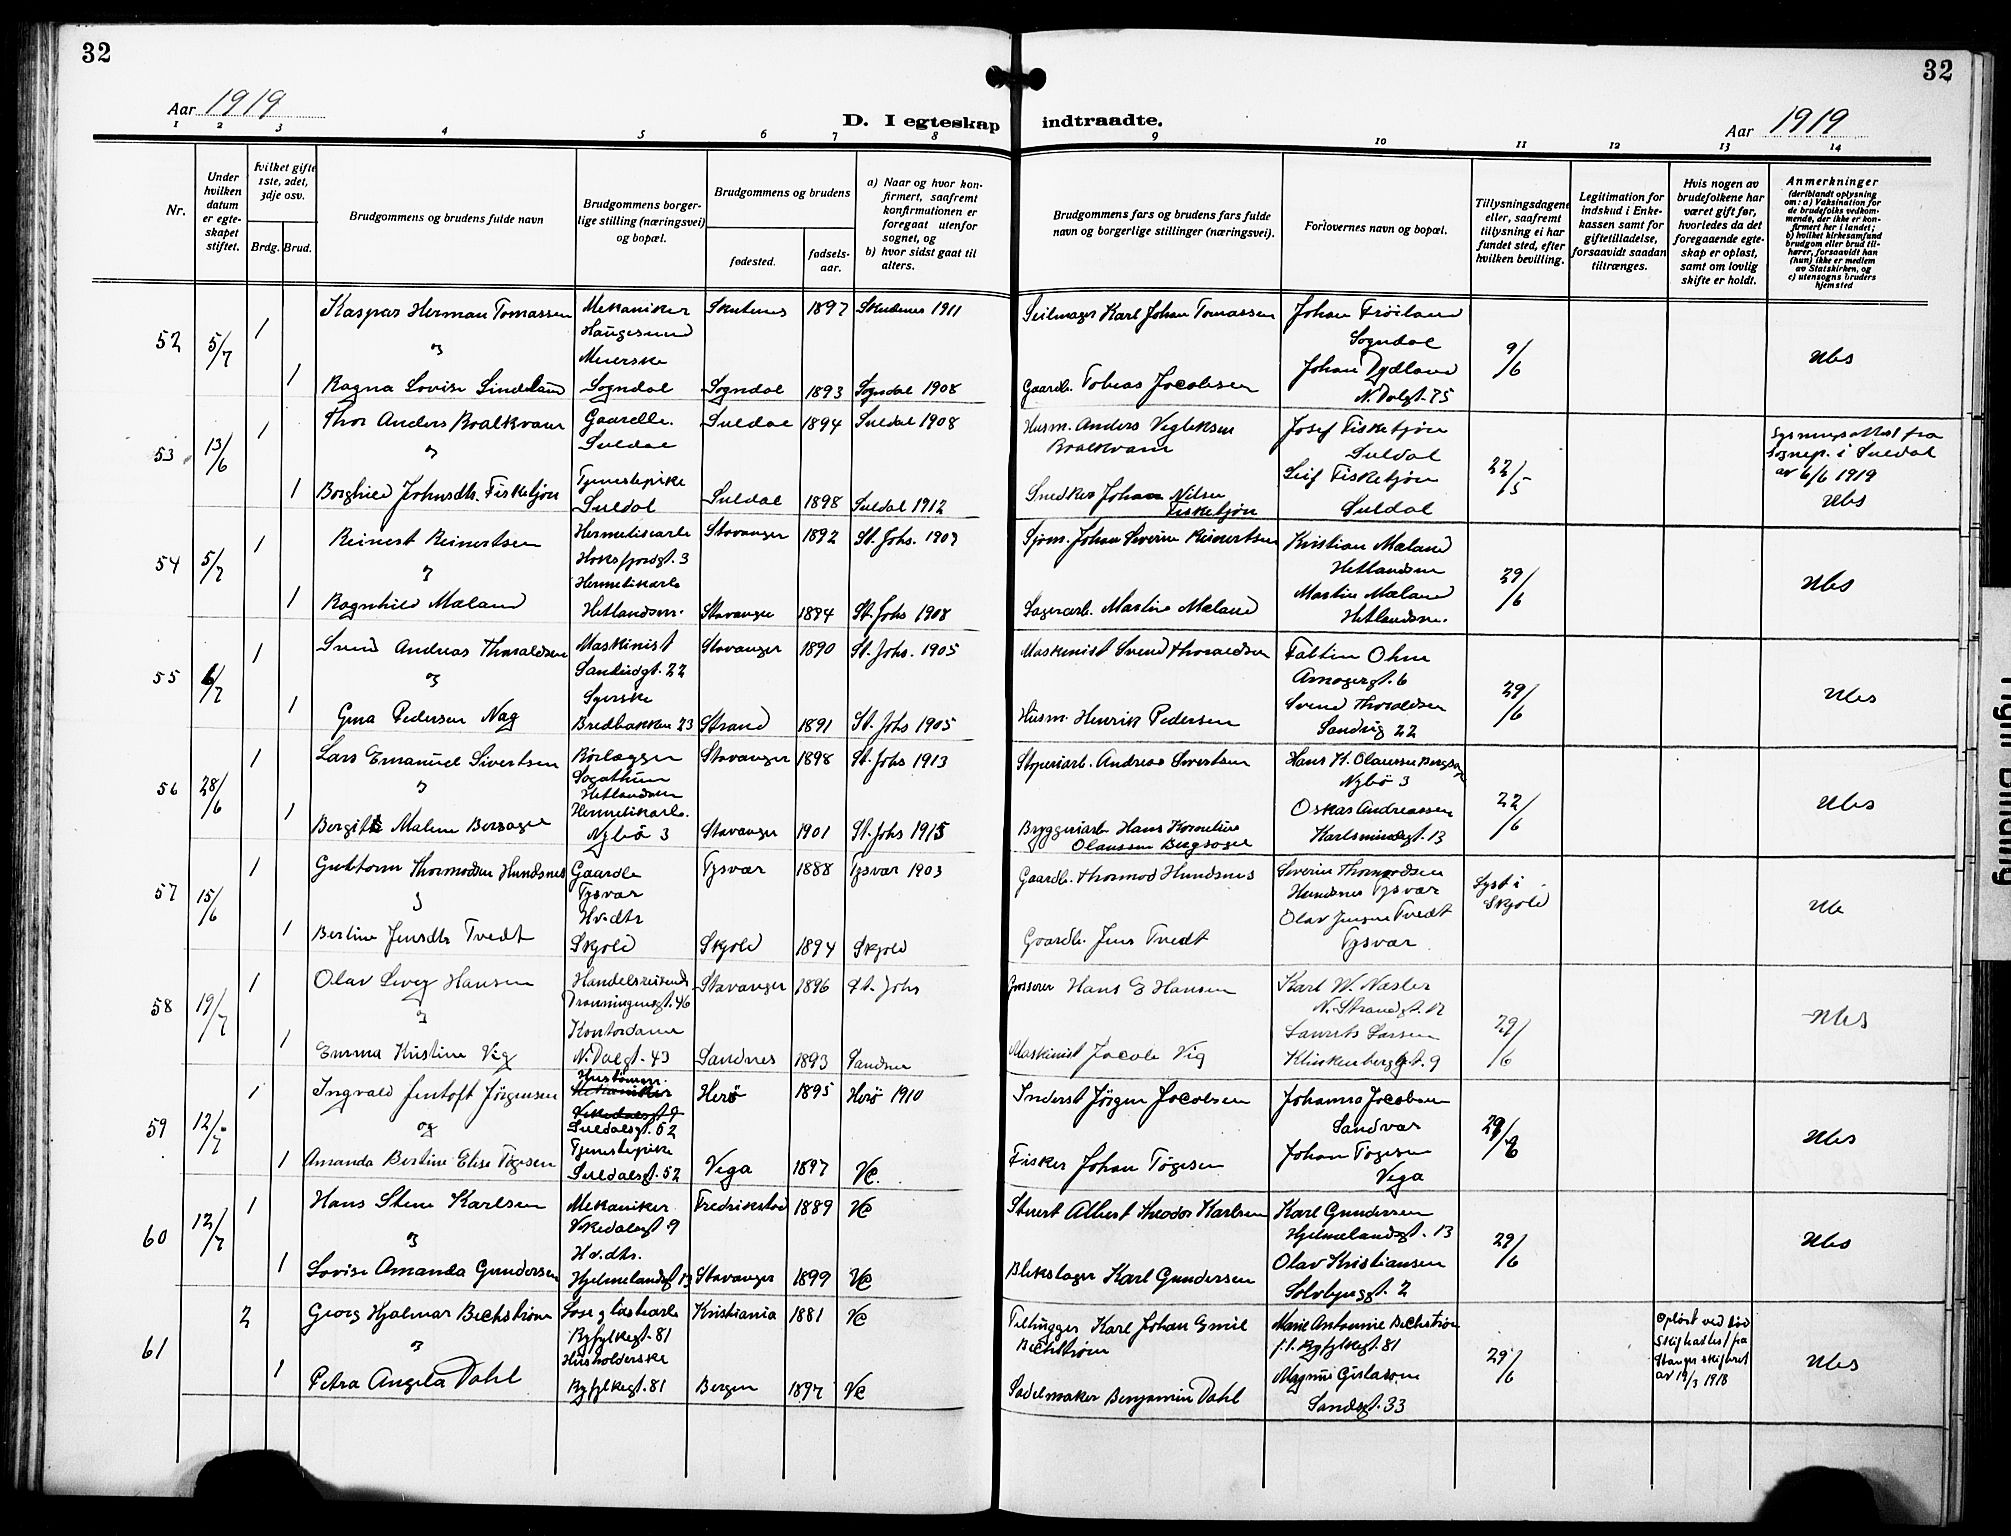 32
32
Aar 1919
D. I egteskap indtraadte.
Aar 1919
1 2 3 4 5 6 7 8 9 10 11 12 13 14
Nr.
Under hvilken datum er egteskapet stiftet.
Hvilket gifte 1ste, 2det, 3dje osv.
Brdg. Brud.
Brudgommens og brudens fulde navn
Brudgommens borgerlige stilling (næringsvei) og bopæl.
Brudgommens og brudens
fødested.
fødselsaar.
a) Naar og hvor konfirmert, saafremt konfirmationen er foregaat utenfor sognet, og
b) hvor sidst gaat til alters.
Brudgommens fars og brudens fars fulde navn og borgerlige stillinger (næringsvei).
Forlovernes navn og bopæl.
Tillysningsdagene eller, saafremt tillysning ei har fundet sted, efter hvilken bevilling.
Legitimation for indskud i Enkekassen samt for giftetilladelse, forsaavidt saadan tiltrænges.
Hvis nogen av brudefolkene har været gift før, hvorledes da det foregaaende egteskap er opløst, samt om lovlig skifte er holdt.
Anmerkninger
(deriblandt oplysning om: a) Vaksination for de brudefolks vedkommende, der ikke er konfirmert her i landet; b) hvilket kirkesamfund brudgom eller brud tilhører, forsaavidt han (hun) ikke er medlem av Statskirken, og c) utensogns bruders hjemsted
52 5/7 1 Kaspar Herman Tomassen Mekaniker Haugesund Skutenes 1897 Skutenes 1911 Seilmager Karl Johan Tomassen Johan Frøiland Sogndal 9/6
og
1 Ragna Lovise Lindeland Meierske Sogndal Sogndal 1893 Sogndal 1908 Gaardb. Tobias Jacobsen Johan Dydland N. Dalgt. 75
53 13/6 1 Thor Anders Roalkvam Gaardb. Suldal Suldal 1894 Suldal 1908 Husm. Anders Vigleksen Roalkvam Josef Fisketjøn Suldal 22/5 Lysningsattest fra Sognep. i Suldal av 6/6 1919
1 Borghild Johnsdtr. Fisketjøn Tjenestepike Suldal Suldal 1898 Suldal 1912 Snedker Johan Nilsen Fisketjøn Leif Fisketjøn Suldal
54 5/7 1 Reinert Reinertsen Hermetikarb. Høksfjordgt. 3 Stavanger 1892 St. Johs. 1907 Sjøm. Johan Severin Reinertsen Kristian Mæland Hetlandsm 29/6
1 Ragnhild Mæland Hermetikarb Hetlandsm. Stavanger 1894 St. Johs 1908 Sagerarb. Martin Mæland Martin Mæland Hetlandsm.
55 6/7 1 Svend Andreas Thoraldsen Maskinist Sandvigt. 22 Stavanger 1890 St. Johs. 1905 Maskinist Svend Thoraldsen Faltin Ohm Amagergt. 6 29/6
og
1 Gina Pedersen Nag Syerske Bredbakken 23 Strand 1891 St. Johs 1905 Husm. Henrik Pedersen Svend Thoraldsen Sandvig 22
56 28/6 1 Lars Emanuel Sivertsen Rørlægger Hetlandsm Stavanger 1898 St. Johs 1913 Støperiarb. Andreas Sivertsen Hans K. Olaussen Bergsagen Nybø 3 22/6
1 Bergit Malene Bersagel Hermetikarb. Nybø 3 Stavanger 1901 St. Johs 1915 Bryggeriarb Hans Kornelius Olaussen Bergsagel Oskar Andreassen Karlsminnegt. 13
57 15/6 1 Guttorm Thormodsen Hundsnes Gaardb Tysvær Tysvær 1888 Tysvær 1903 Gaardb. Thormod Hundsnes Severin Thormodsen Hundsnes Tysvær Lyst i Skjold
1 Bertine Jensdtr Tvedt Hv.dtr Skjold Skjold 1894 Skjold Gaardb. Jens Tvedt Olav Jensen Tvedt Tysvær
58 19/7 1 Olav Hansen Handelsreisende Dronningensgt. 46 Stavanger 1896 St. Johs Hans E Hansen Karl W. Næsler N. Strandgt. 17 29/6
og
1 Emma Kristine Vig Kontordame N. Dalgt. 43 Sandnes 1893 Sandnes Maskinist Jacob Vig Laurits Larsen Klinkenberggt. 9
59 12/7 1 Ingvald Jentoft Jørgensen Mekaniker Vikedalsgt 9 Suldalsgt. 52 Herø 1895 Herø 1910 Inderst Jørgen Jacobsen Johannes Jacobsen Sandvær 29/6
og
1 Amanda Bertine Elise Tøgesen Tjenestepike Suldalsgt. 52 Vega 1897 Vc. Fisker Johan Tøgesen Johan Tøgesen Vega
60 12/7 1 Hans Stene Karlsen Mekaniker Vikedalsgt 9 Fredrikstad 1889 Vc Stuert Albert Theodor Karlsen Karl Gundersen Hjelmelandsgt. 13 29/6
og
1 Lovise Amanda Gundersen Hv.dtr. Hjelmelandsgt 13 Stavanger 1899 Vc Blikslager Karl Gundersen Olav Kristiansen Solvbjergt. 2
61 2 Georg Hjalmar Bechstrøm Løse glasarb Ryfylkegt. 81 Kristiania 1881 Vc Tilhugger Karl Johan Emil Bechstrøm Marie Antonnie Bechstrøm Ryfylkegt. 81 29/6 Opløst ved død Skifteattest fra Stanger skifteret av 19/3 1918
og
1 Petra Angela Dahl Husholderske Ryfylkegt. 81 Bergen 1897 Vc Sadelmaker Benjamin Dahl Magnus Gislason Sandsgt. 33
Tight binding